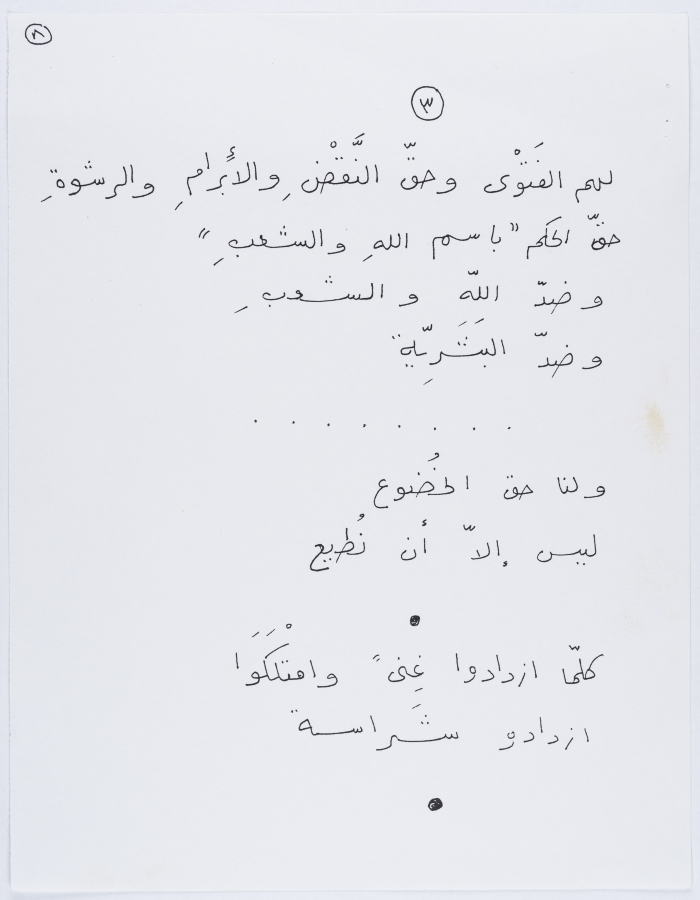 ٨
٣
لهم الفَتْوى وحقّ النَّقْضِ والأبرامِ والرشوةِ
حقّ الحكم "باسم اللهِ والشعبِ"
وضدّ اللّه والشعبِ
وضدّ البَشَرِيّة
. . . . . . . .
ولنا حق الخُضوع
ليس إلاّ أن نُطيع
●
كلّما ازدادوا غِنىً وامتَلَكَوْا
ازدادو شَراسة
●